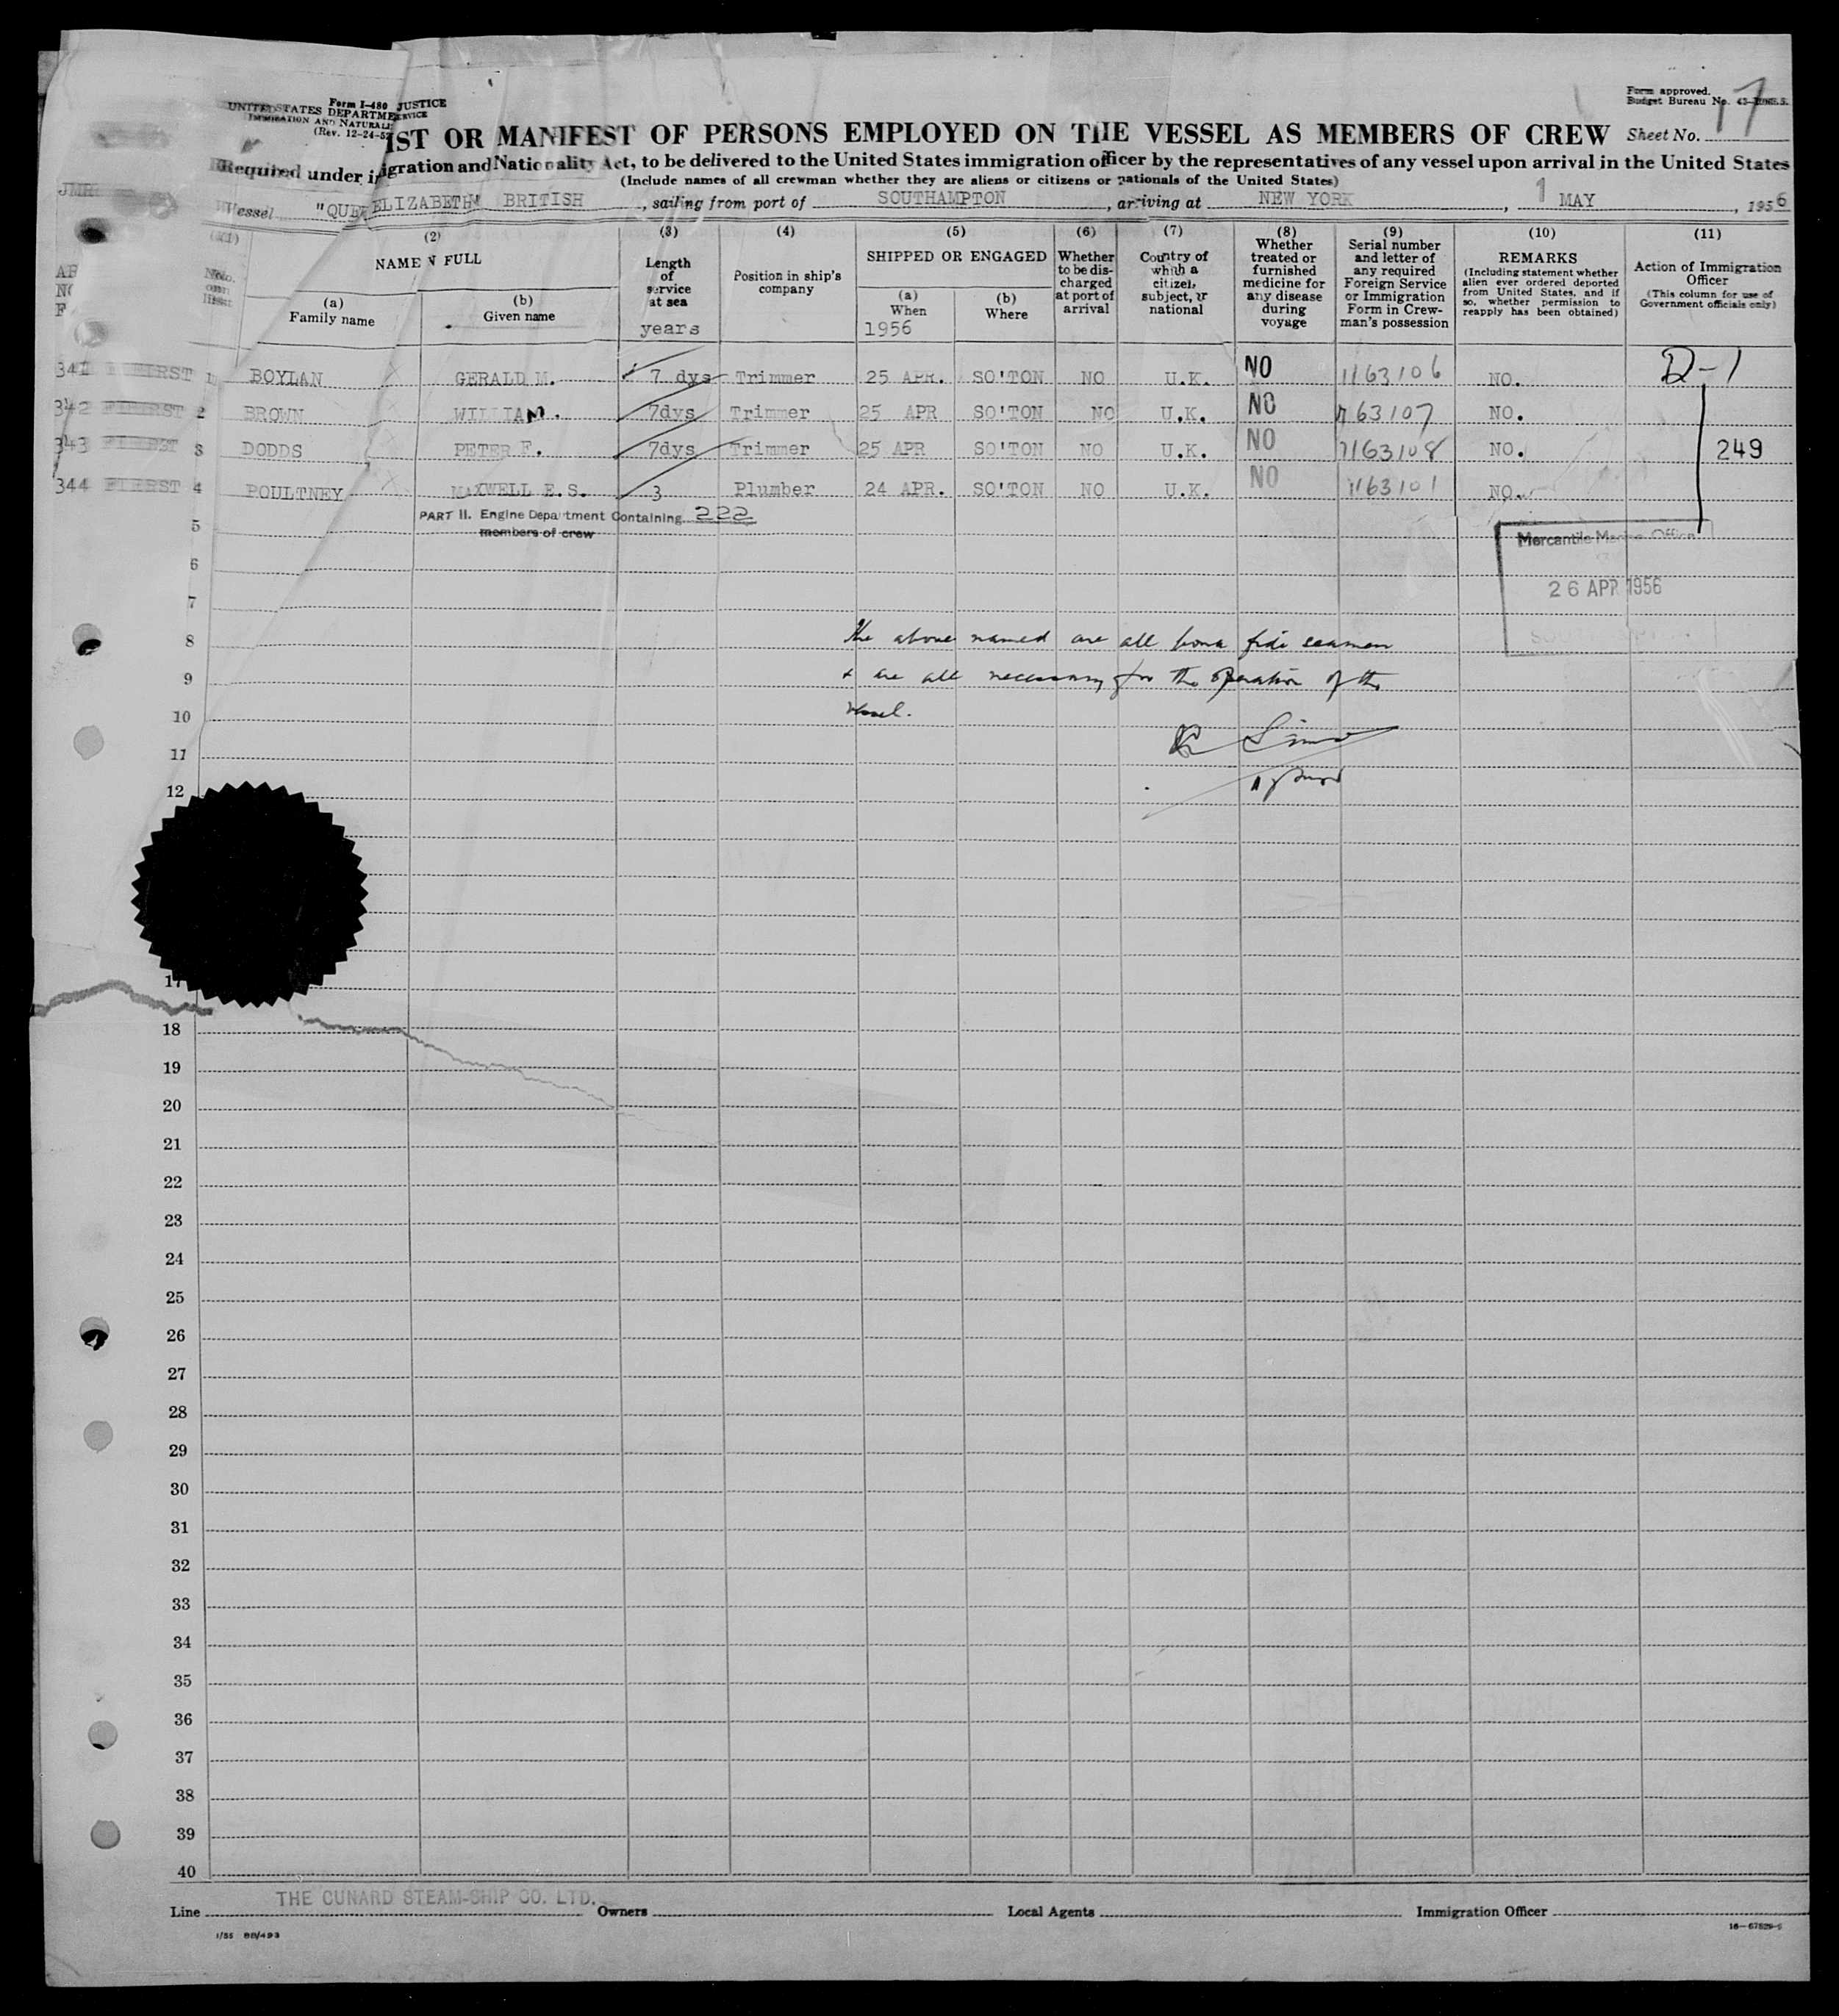 Form I-480
UNITED STATES DEPARTMENT JUSTICE
(Rev. 12-24-52
Form approved.
Budget Bureau No.
IST OR MANIFEST OF PERSONS EMPLOYED ON THE VESSEL AS MEMBERS OF CREW
Sheet No. 17
Required under igration and Nationality Act, to be delivered to the United States immigration officer by the representatives of any vessel upon arrival in the United States
(Include names of all crewman whether they are aliens or citizens or nationals of the United States)
Vessel "QUE ELIZABETH" BRITISH, sailing from port of SOUTHAMPTON, arriving at NEW YORK, 1 MAY, 1956
(2) (3) (4) (5) (6) (7) (8) (9) (10) (11)
NAME N FULL
(a) Family name
(b) Given name
Length of service at sea
years
Position in ship's company
SHIPPED OR ENGAGED
(a) When
1956
(b) Where
Whether to be discharged at port of arrival
Country of which a citizen, subject, or national
Whether treated or furnished medicine for any disease during voyage
Serial number and letter of any required Foreign Service or Immigration Form in Crewman's possession
REMARKS
(Including statement whether alien ever ordered deported from United States, and if so, whether permission to reapply has been obtained)
Action of Immigration Officer
(This column for use of Government officials only)
341 FIRST 1 BOYLAN GERALD M. 7 dys Trimmer 25 APR. SO'TON NO U.K. NO 1163106 NO. D-1
342 FIRST 2 BROWN WILLIAM. 7dys Trimmer 25 APR SO'TON NO U.K. NO 63107 NO.
343 FIRST 3 DODDS PETER F. 7dys Trimmer 25 APR SO'TON NO U.K. NO 1163108 NO. 249
344 FIRST 4 POULTNEY MAXWELL E.S. 3 Plumber 24 APR. SO'TON NO U.K. NO 1163101 NO.
PART II. Engine Department Containing 222
members of crew
5
Mercantile Marine Office
6
26 APR 1956
7
8
The above named are all bona fide seamen
9
& are all necessary for the operation of the
10
vessel.
11
12
17
18
19
20
21
22
23
24
25
26
27
28
29
30
31
32
33
34
35
36
37
38
39
40
THE CUNARD STEAM-SHIP CO. LTD.
Line Owners Local Agents Immigration Officer
1/55 88/493